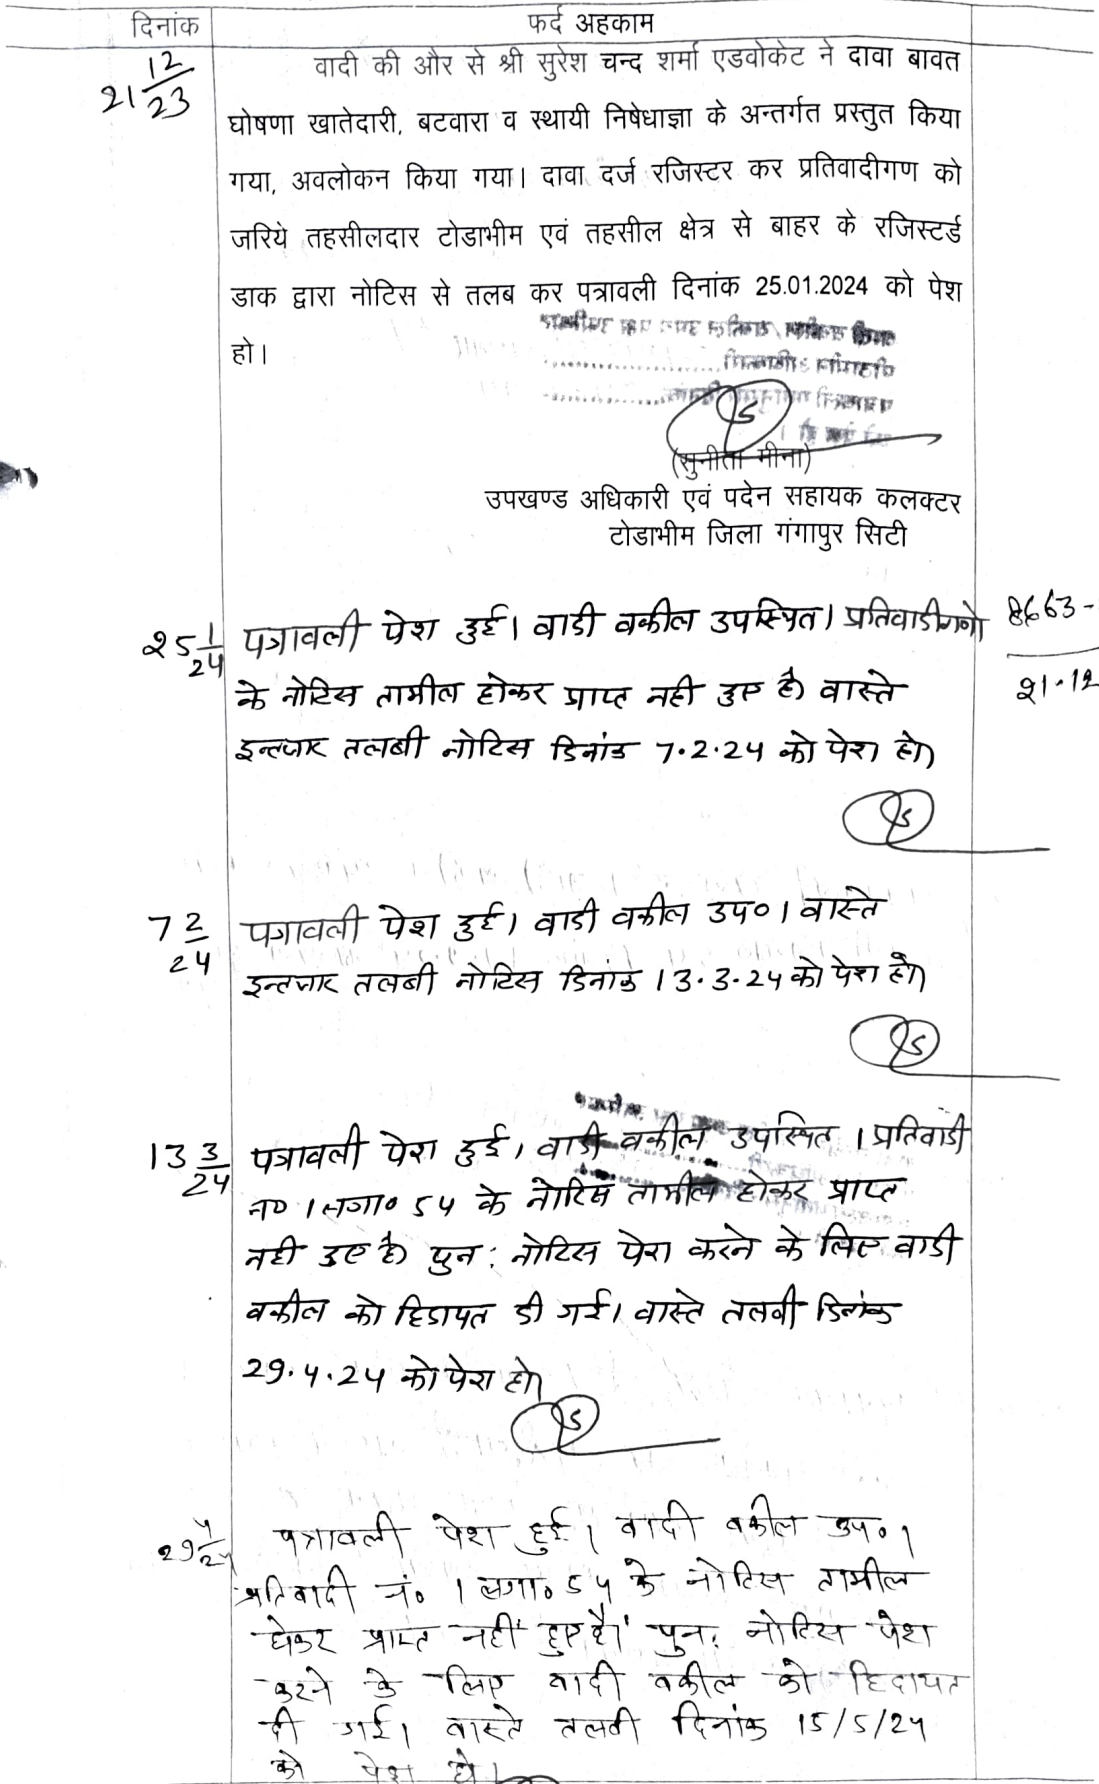 दिनांक
फर्द अहकाम
21 12/23
वादी की और से श्री सुरेश चन्द शर्मा एडवोकेट ने दावा बावत
घोषणा खातेदारी, बटवारा व स्थायी निषेधाज्ञा के अन्तर्गत प्रस्तुत किया
गया, अवलोकन किया गया। दावा दर्ज रजिस्टर कर प्रतिवादीगण को
जरिये तहसीलदार टोडाभीम एवं तहसील क्षेत्र से बाहर के रजिस्टर्ड
डाक द्वारा नोटिस से तलब कर पत्रावली दिनांक 25.01.2024 को पेश
हो।
(सुनीता मीना)
उपखण्ड अधिकारी एवं पदेन सहायक कलक्टर
टोडाभीम जिला गंगापुर सिटी
25 1/24
पत्रावली पेश हुई। वादी वकील उपस्थित। प्रतिवादीगणो
8663-
21.12
के नोटिस तामील होकर प्राप्त नही हुए है। वास्ते
इन्तजार तलबी नोटिस दिनांक 7.2.24 को पेश हो।
7 2/24
पत्रावली पेश हुई। वादी वकील उप०। वास्ते
इन्तजार तलबी नोटिस दिनांक 13.3.24 को पेश हो।
13 3/24
पत्रावली पेश हुई। वादी वकील उपस्थित। प्रतिवादी
न० 1 लगा० 54 के नोटिस तामील होकर प्राप्त
नही हुए है। पुन: नोटिस पेश करने के लिए वादी
वकील को हिदायत दी गई। वास्ते तलवी दिनांक
29.4.24 को पेश हो।
29 4/24
पत्रावली पेश हुई। वादी वकील उप०।
प्रतिवादी नं० 1 लगा० 54 के नोटिस तामील
होकर प्राप्त नहीं हुए है। पुन: नोटिस पेश
करने के लिए वादी वकील को हिदायत
दी गई। वास्ते तलवी दिनांक 15/5/24
को पेश हो।